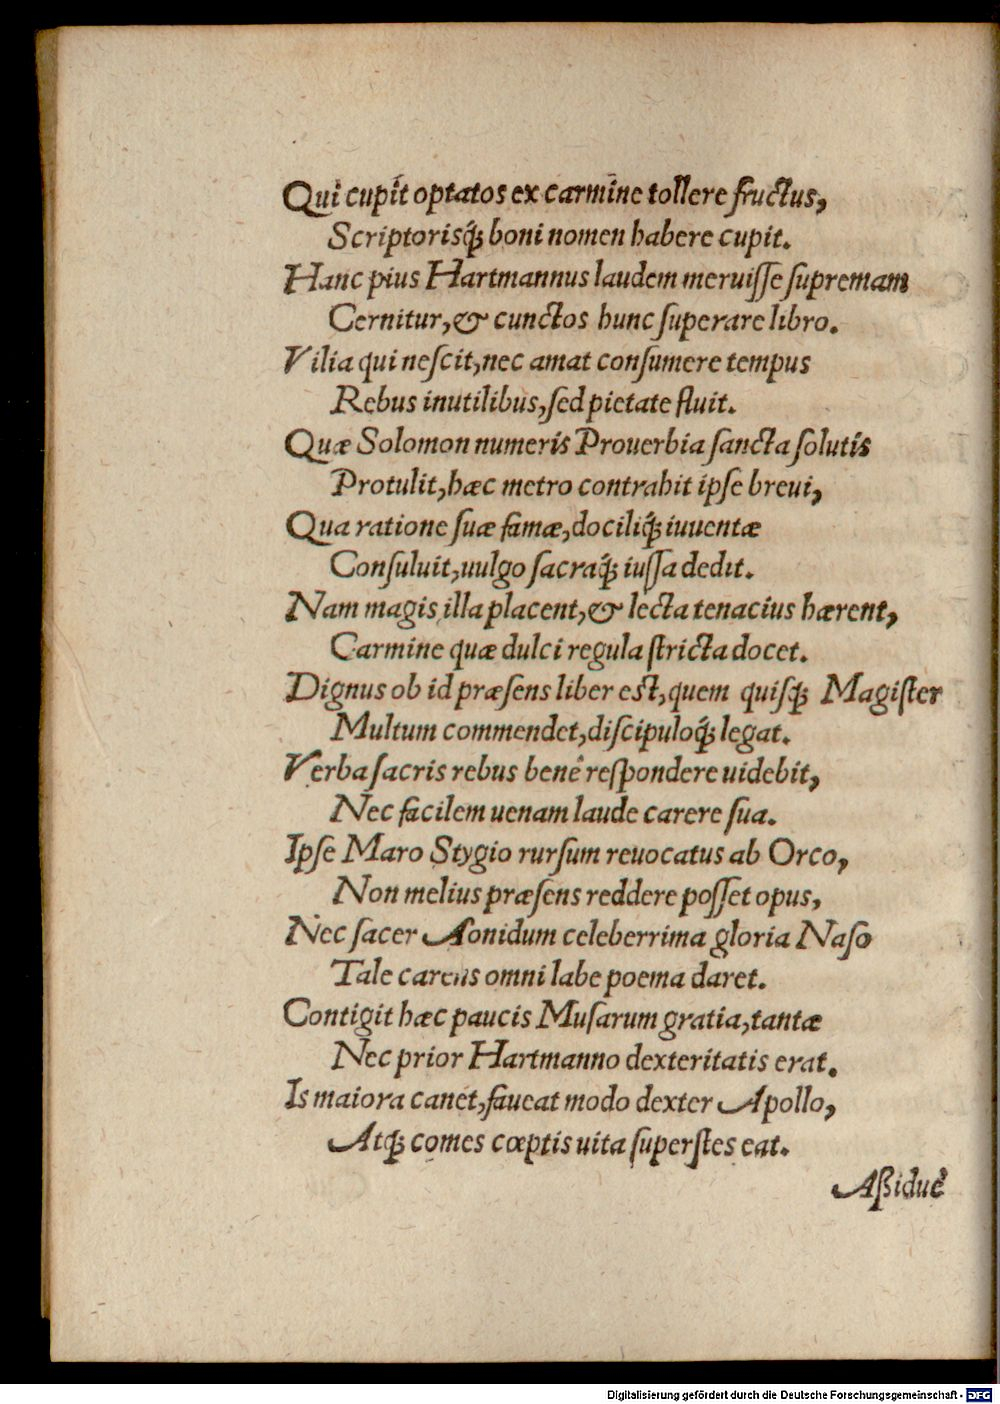 Qui cupit optatos ex carmine tollere fructus,
Scriptorisq́; boni nomen habere cupit.
Hanc pius Hartmannus laudem meruiſſe ſupremam
Cernitur, & cunctos hunc ſuperare libro.
Vilia qui neſcit, nec amat conſumere tempus
Rebus inutilibus, ſed pietate fluit.
Quæ Solomon numeris Prouerbia ſancta ſolutis
Protulit, hæc metro contrahit ipſe breui,
Qua ratione ſuæ famæ, dociliq́; iuuentæ
Conſuluit, uulgo ſacraq́; iuſſa dedit.
Nam magis illa placent, & lecta tenacius hærent,
Carmine quæ dulci regula ſtricta docet.
Dignus ob id præſens liber est, quem quiſq; Magiſter
Multum commendet, diſcipuloq́; legat.
Verba ſacris rebus benè reſpondere uidebit,
Nec facilem uenam laude carere ſua.
Ipſe Maro Stygio rurſum reuocatus ab Orco,
Non melius præſens reddere poſſet opus,
Nec ſacer Aonidum celeberrima gloria Naſo
Tale carens omni labe poema daret.
Contigit hæc paucis Muſarum gratia, tantæ
Nec prior Hartmanno dexteritatis erat.
Is maiora canet, faueat modo dexter Apollo,
Atq; comes cœptis uita ſuperſtes eat.
Aßiduè
Digitalisierung gefördert durch die Deutsche Forschungsgemeinschaft - DFG